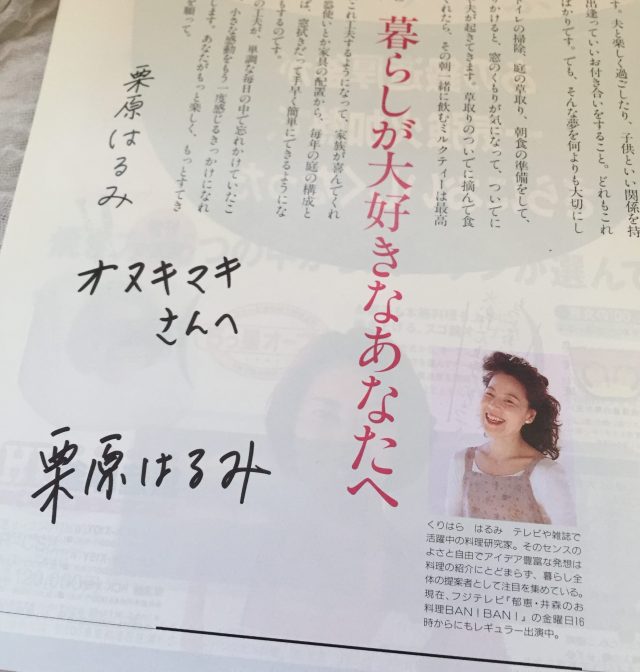 暮らしが大好きなあなたへ
す。夫と楽しく過ごしたり、子供といい関係を持
出逢っていいお付き合いをすること。どれもこれ
ばかりです。でも、そんな夢を何よりも大切にし
イレの掃除、庭の草取り、朝食の準備をして、
かけると、窓のくもりが気になって、ついでに
工夫が起きてきます。草取りのついでに摘んで食
れたら、その朝一緒に飲むミルクティーは最高
これ工夫するようになって、家族が喜んでくれ
器使いとか家具の配置から、毎年の庭の構成と
ば、窓拭きだって手早く簡単にできるようにな
もするのです。
の工夫が、単調な毎日の中で忘れかけていたこ
小さな感動をもう一度感じるきっかけになれ
します。あなたがもっと楽しく、もっとすてき
を願って。
栗原はるみ
オヌキマキ
さんへ
栗原はるみ
くりはら はるみ テレビや雑誌で
活躍中の料理研究家。そのセンスの
よさと自由でアイデア豊富な発想は
料理の紹介にとどまらず、暮らし全
体の提案者として注目を集めている。
現在、フジテレビ「郁恵・井森のお
料理BAN!BAN!」の金曜日16
時からにもレギュラー出演中。